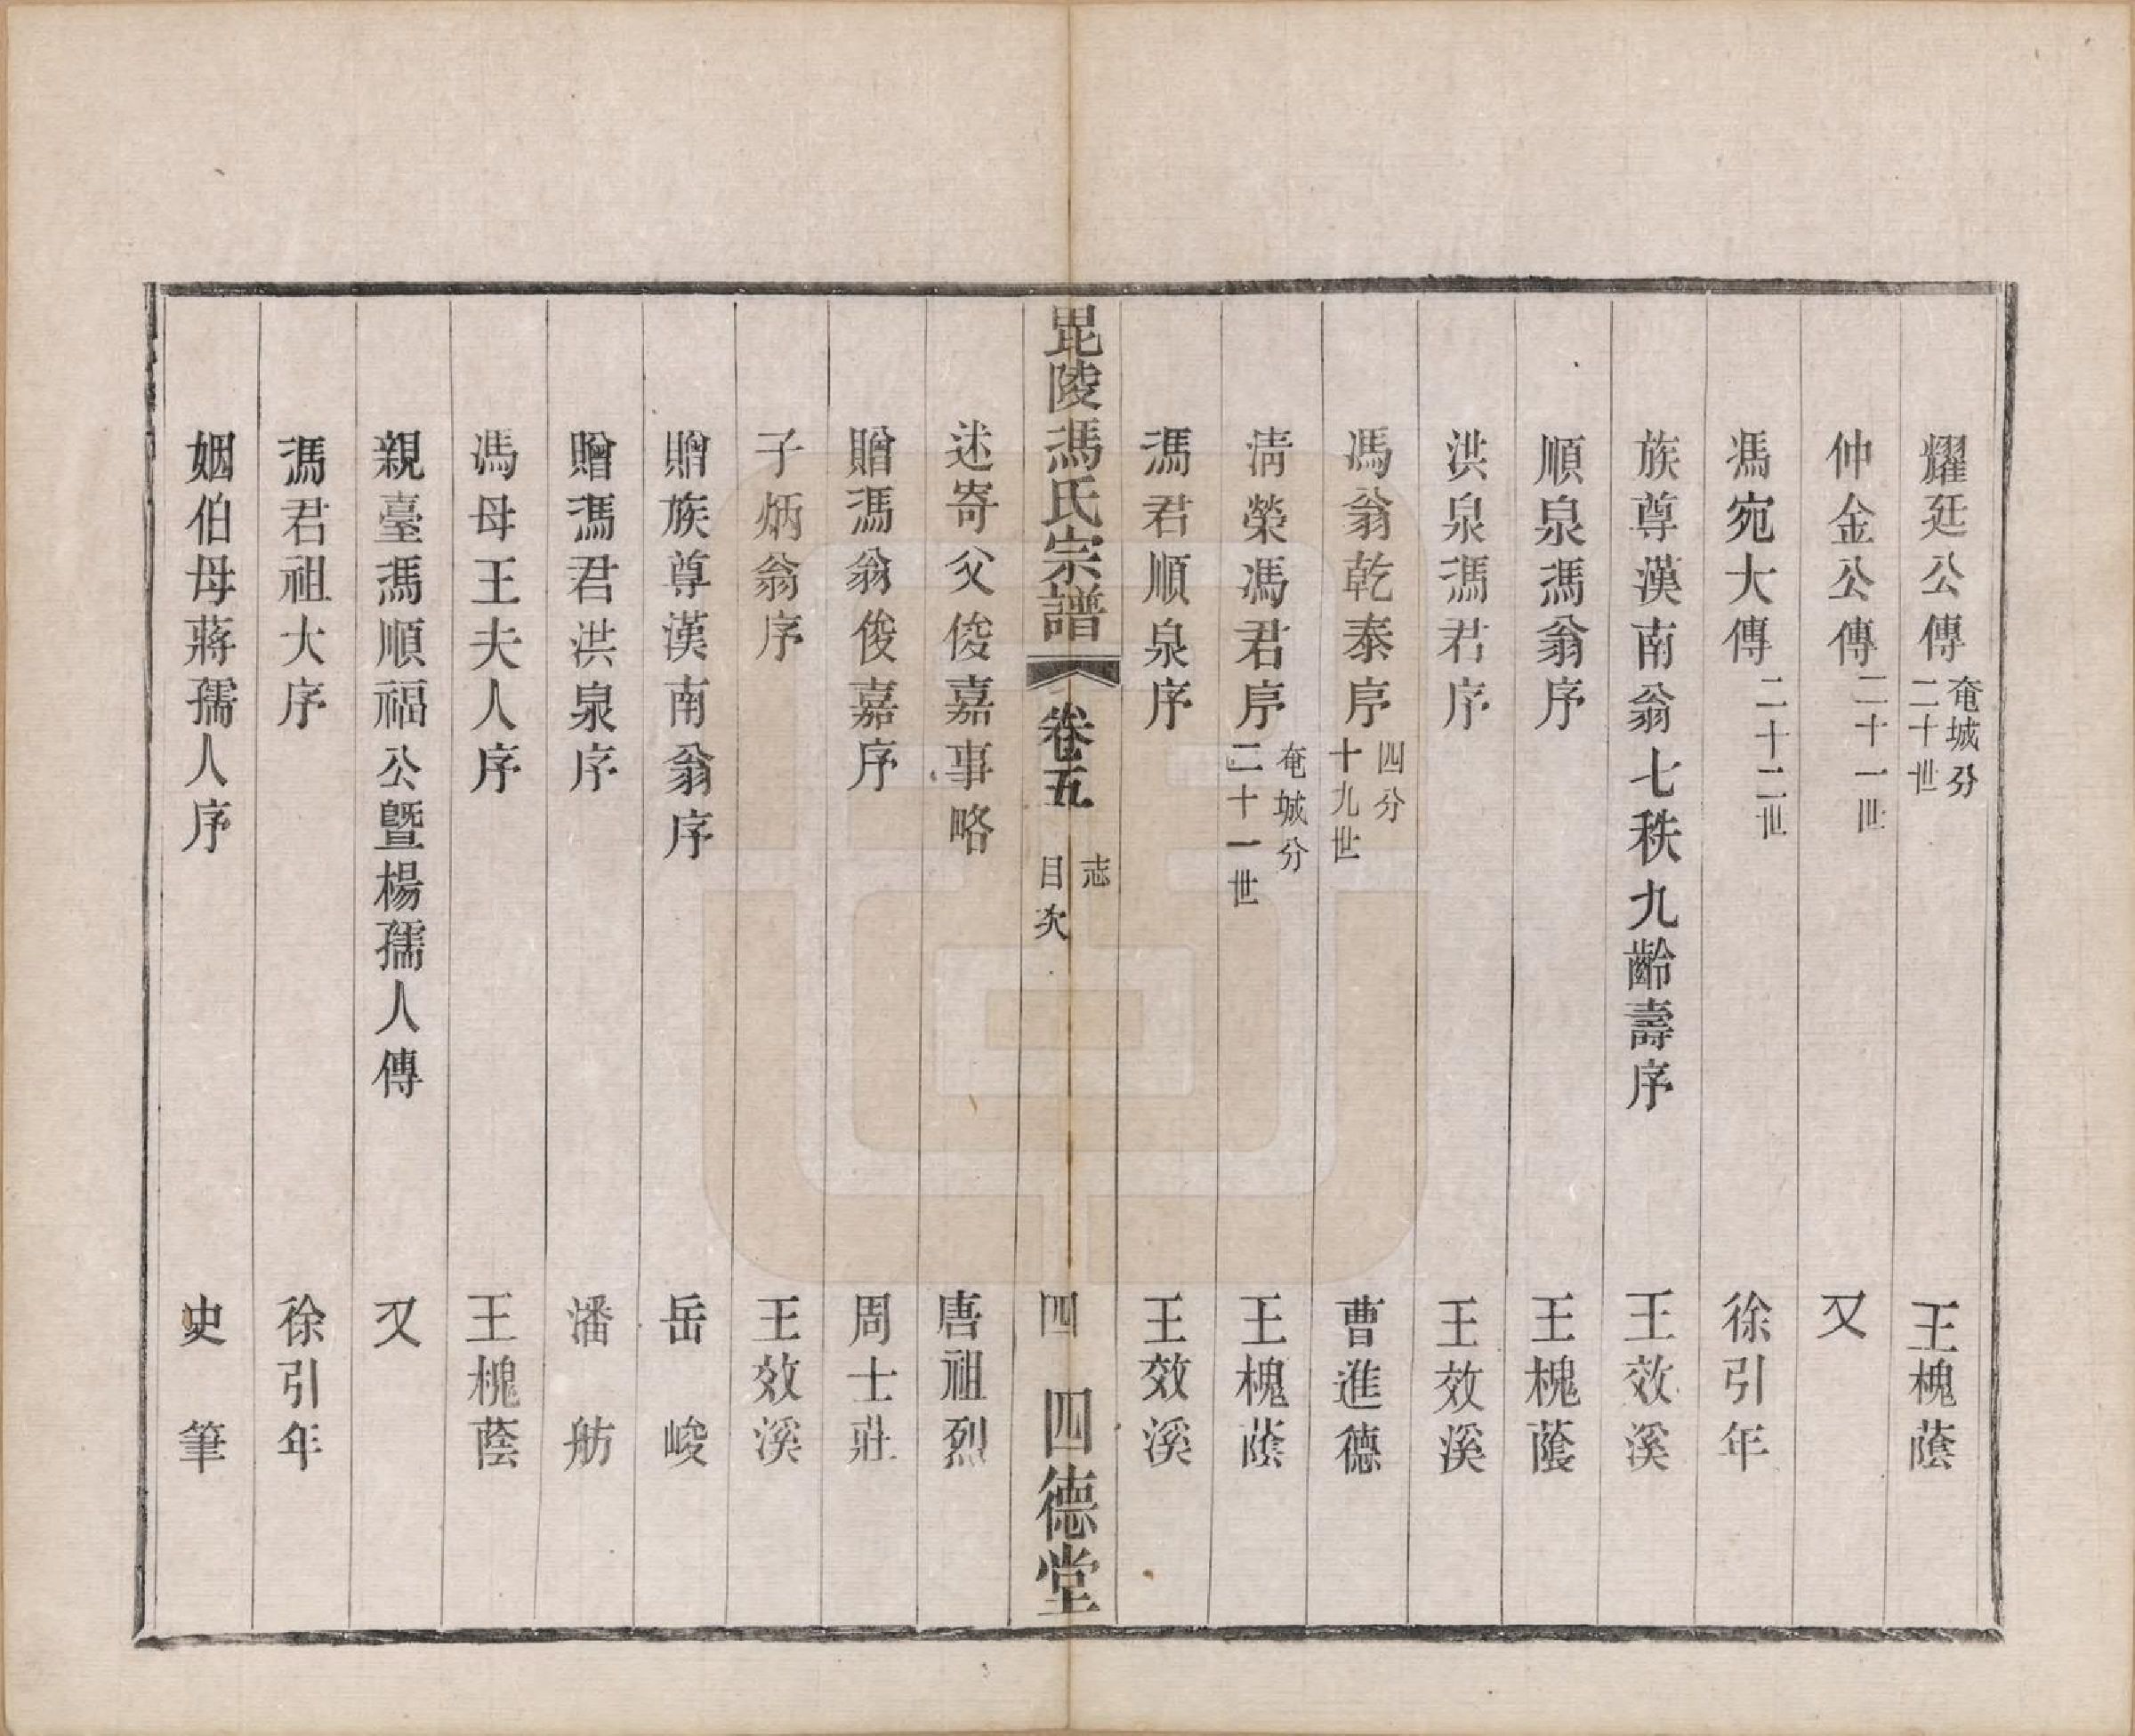 耀廷公傳 奄城分二十世 王槐蔭
仲金公傳 二十一世 又
馮宛大傳 二十二世 徐引年
族尊漢南翁七秩九齡壽序 王效溪
順泉馮翁序 王槐蔭
洪泉馮君序 王效溪
馮翁乾泰序 四分十九世 曹進德
淸榮馮君序 奄城分二十一世 王槐蔭
馮君順泉序 王效溪
毘陵馮氏宗譜 卷五 志目次 四 四德堂
述寄父俊嘉事略 唐祖烈
贈馮翁俊嘉序 周士莊
子炳翁序 王效溪
贈族尊漢南翁序 岳峻
贈馮君洪泉序 潘舫
馮母王夫人序 王槐蔭
親臺馮順福公曁楊孺人傳 又
馮君祖大序 徐引年
姻伯母蔣孺人序 史筆